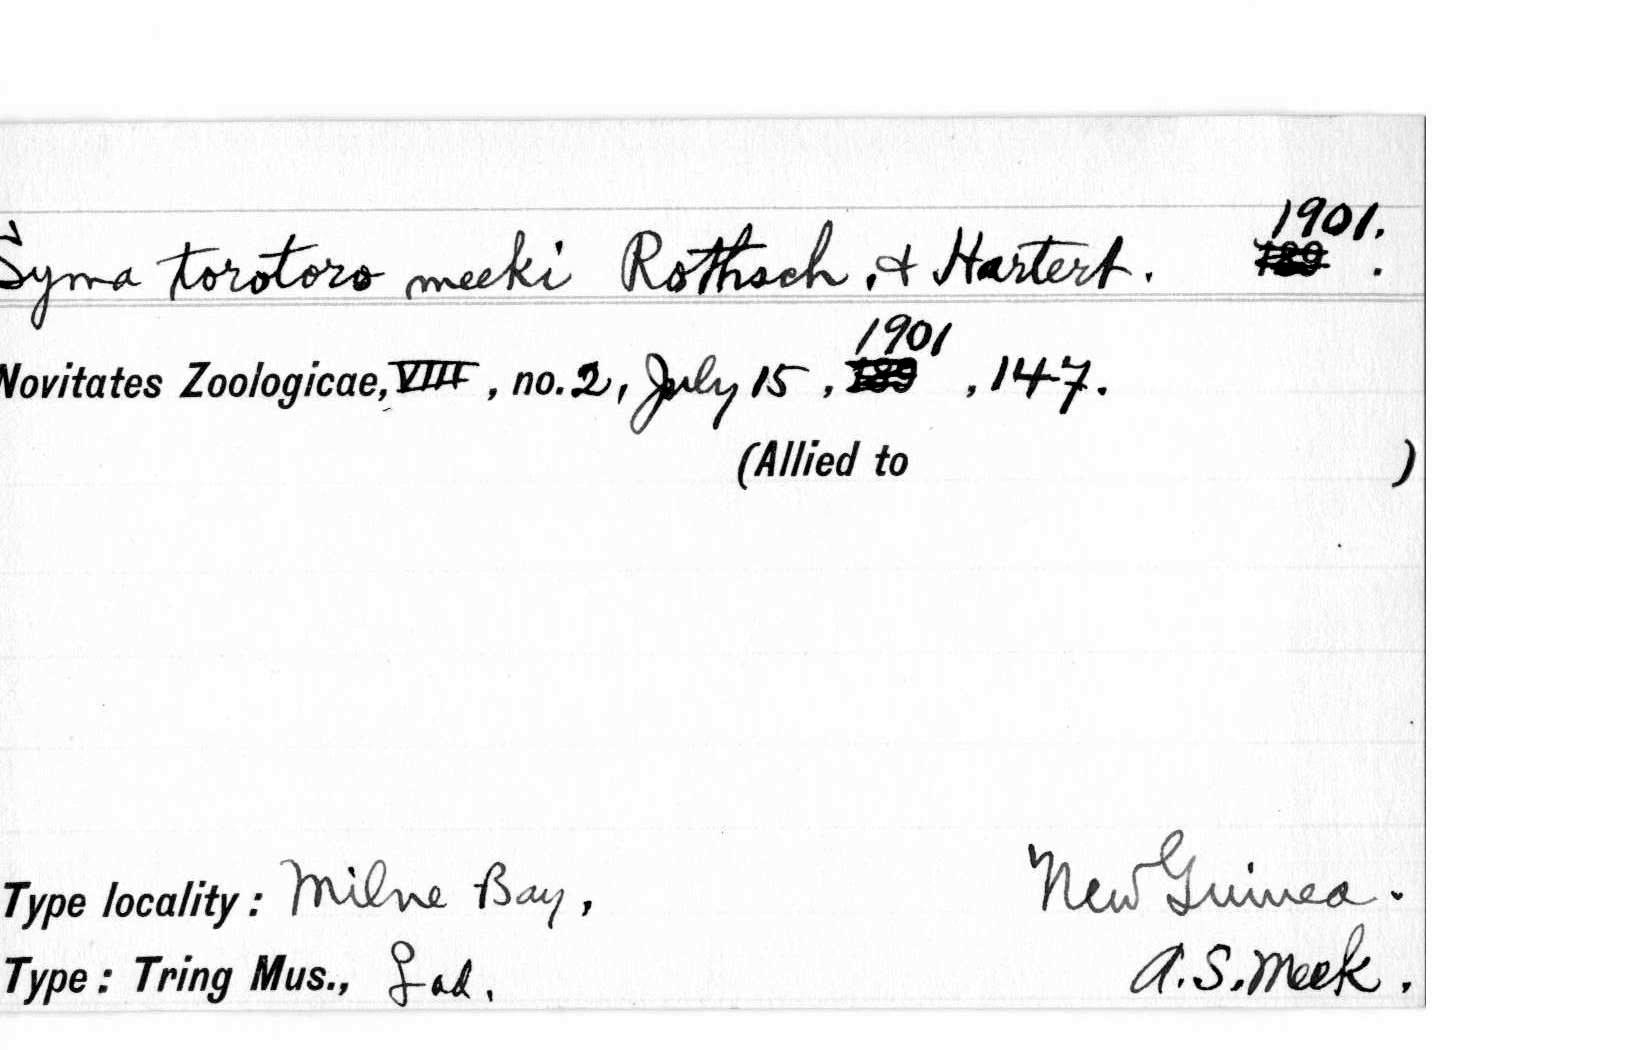 1901.
Syma torotoro meeki Rothsch. & Hartert. 189 .
1901
Novitates Zoologicae, VIII, no. 2, July 15, 189 , 147.
(Allied to )
Type locality: Milne Bay, New Guinea.
Type: Tring Mus., ♀ ad. A.S. Meek.